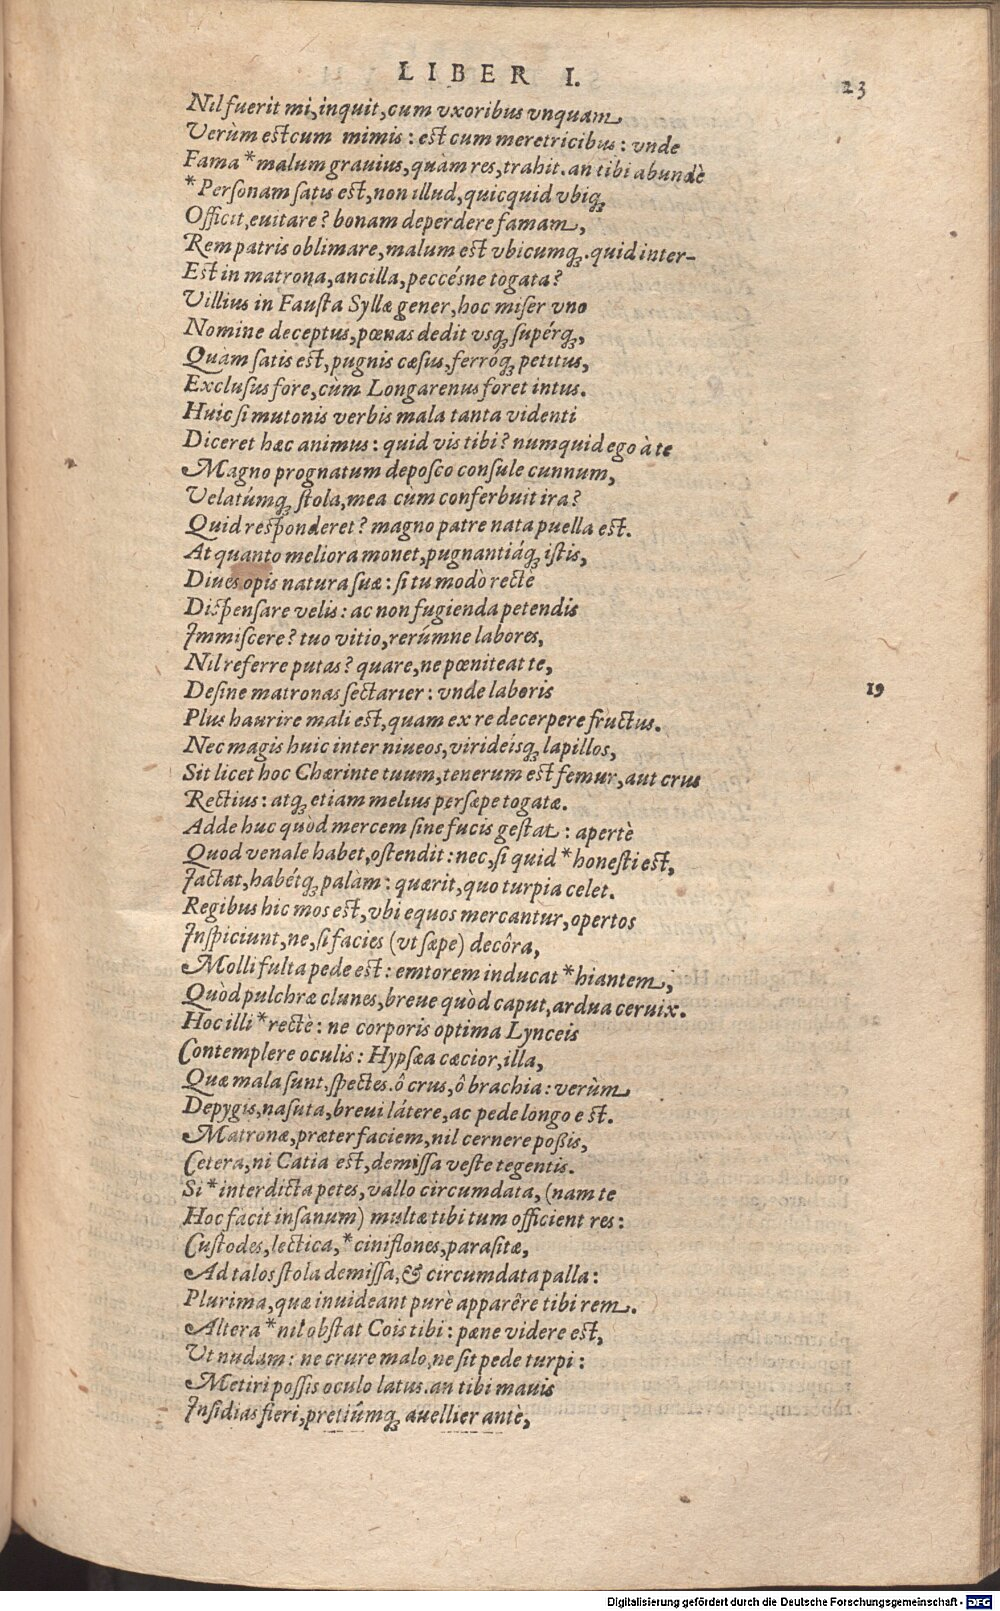 LIBER I. 23
Nil fuerit mi, inquit, cum vxoribus vnquam
Verùm est cum mimis: est cum meretricibus: vnde
Fama *malum grauius, quàm res, trahit. an tibi abundè
*Personam satis est, non illud, quicquid vbiq;
Officit, euitare? bonam deperdere famam,
Rem patris oblimare, malum est vbicumq;. quid inter-
Est in matrona, ancilla, peccésne togata?
Villius in Fausta Syllæ gener, hoc miser vno
Nomine deceptus, pœnas dedit vsq; supérq;,
Quam satis est, pugnis cæsus, ferróq; petitus,
Exclusus fore, cùm Longarenus foret intus.
Huic si mutonis verbis mala tanta videnti
Diceret hæc animus: quid vis tibi? numquid ego à te
Magno prognatum deposco consule cunnum,
Velatúmq; stola, mea cùm conferbuit ira?
Quid responderet? magno patre nata puella est.
At quanto meliora monet, pugnantiáq; istis,
Diues opis natura suæ: si tu modò rectè
Dispensare velis: ac non fugienda petendis
Immiscere? tuo vitio, rerúmne labores,
Nil referre putas? quare, ne pœniteat te,
Desine matronas sectarier: vnde laboris
19
Plus haurire mali est, quam ex re decerpere fructus.
Nec magis huic inter niueos, virideisq; lapillos,
Sit licet hoc Chærinte tuum, tenerum est femur, aut crus
Rectius: atq; etiam melius persæpe togatæ.
Adde huc quòd mercem sine fucis gestat: apertè
Quod venale habet, ostendit: nec, si quid *honesti est,
Jactat, habétq; palàm: quærit, quo turpia celet.
Regibus hic mos est, vbi equos mercantur, opertos
Inspiciunt, ne, si facies (vt sæpe) decôra,
Molli fulta pede est: emtorem inducat *hiantem,
Quòd pulchræ clunes, breue quòd caput, ardua ceruix.
Hoc illi *rectè: ne corporis optima Lynceis
Contemplere oculis: Hypsæa cæcior, illa,
Quæ mala sunt, spectes. ô crus, ô brachia: verùm
Depygis, nasuta, breui látere, ac pede longo est.
Matronæ, præter faciem, nil cernere poßis,
Cetera, ni Catia est, demissa veste tegentis.
Si *interdicta petes, vallo circumdata, (nam te
Hoc facit insanum) multæ tibi tum officient res:
Custodes, lectica, *ciniflones, parasitæ,
Ad talos stola demissa, & circumdata palla:
Plurima, quæ inuideant purè apparêre tibi rem.
Altera *nil obstat Cois tibi: pæne videre est,
Vt nudam: ne crure malo, ne sit pede turpi:
Metiri possis oculo latus. an tibi mauis
Insidias fieri, pretiúmq; auellier ante,
Digitalisierung gefördert durch die Deutsche Forschungsgemeinschaft - DFG